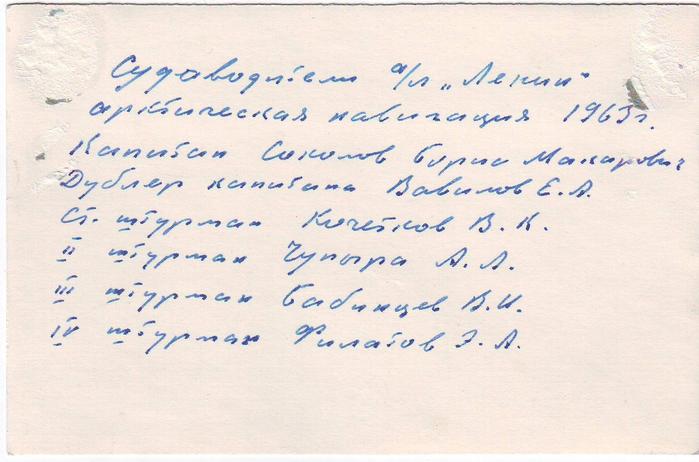 Судоводители а/л „Ленин"
арктическая навигация 1963г.
Капитан Соколов Борис Макарович
Дублер капитана Вавилов Е. А.
Ст. штурман Кочетков В. К.
II штурман Чупыра А. Л.
III штурман Бабинцев В. И.
IV штурман Филатов Э. А.